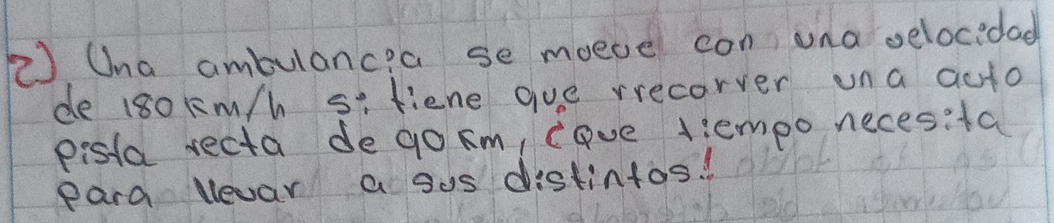 2) Una ambulancia se moeve con una velocidad
de 180 km/h si tiene que rrecorrer una auto
pista recta de 90 km, ¿que tiempo necesita
para llevar a sus distintos!